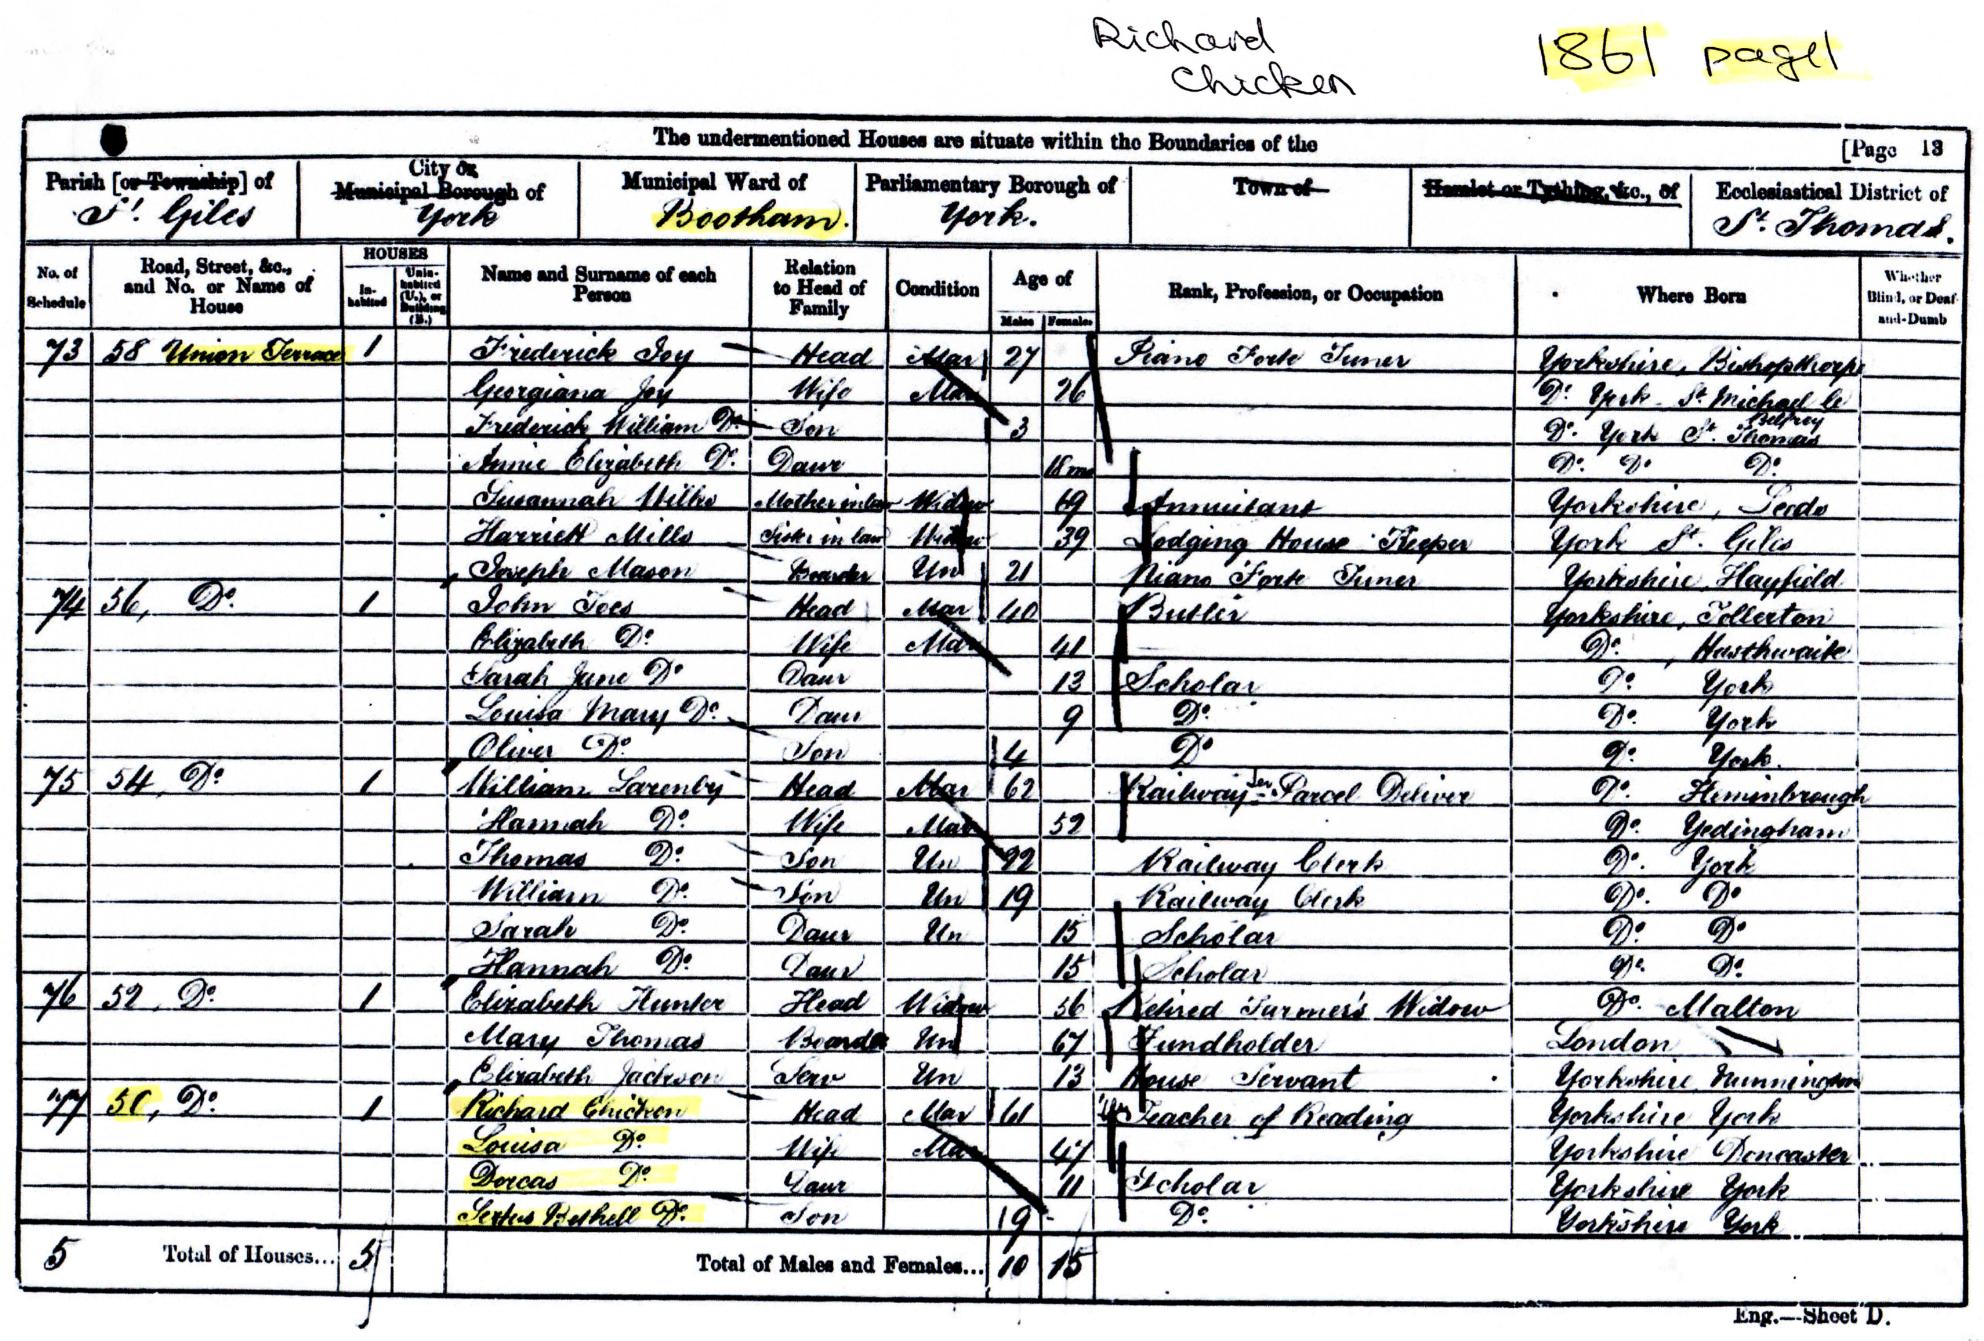 Richard
Chicken
1861 page 1
The undermentioned Houses are situate within the Boundaries of the
[Page 13
Parish [or Township] of St. Giles
City or Municipal Borough of York
Municipal Ward of Bootham.
Parliamentary Borough of York.
Town of
Hamlet or Tything, &c., of
Ecclesiastical District of St. Thomas.
No. of Schedule
Road, Street, &c., and No. or Name of House
HOUSES
Inhabited
Uninhabited (U.), or Building (B.)
Name and Surname of each Person
Relation to Head of Family
Condition
Age of
Males Females
Rank, Profession, or Occupation
Where Born
Whether Blind, or Deaf-and-Dumb
73 58 Union Terrace 1 Frederick Joy Head Mar 27 Piano Forte Tuner Yorkshire, Bishopthorpe
Georgiana Joy Wife Mar 26 Do. York St. Michael le Belfrey
Frederick William Do. Son 3 Do. York St. Thomas
Annie Elizabeth Do. Daur 18 mo Do. Do. Do.
Susannah Wilks Mother in law Widow 69 Annuitant Yorkshire, Leeds
Harriett Mills Sister in law Widow 39 Lodging House Keeper York St. Giles
Joseph Mason Boarder Un 21 Piano Forte Tuner Yorkshire, Hayfield
74 56, Do. 1 John Toes Head Mar 40 Butler Yorkshire, Tollerton
Elizabeth Do. Wife Mar 41 Do., Husthwaite
Sarah Jane Do Daur 13 Scholar Do. York
Louisa Mary Do. Daur 9 Do. Do. York
Oliver Do Son 4 Do Do. York.
75 54, Do. 1 William Larenby Head Mar 62 Railway Parcel Deliver Do. Heminbrough
Hannah Do. Wife Mar 52 Do. Yedingham
Thomas Do. Son Un 22 Railway Clerk Do. York
William Do. Son Un 19 Railway Clerk Do. Do
Sarah Do. Daur Un 15 Scholar Do. Do
Hannah Do. Daur 15 Scholar Do. Do.
76 52, Do. 1 Elizabeth Hunter Head Widow 56 Retired Farmer's Widow Do. Malton
Mary Thomas Boarder Un 67 Fundholder London
Elizabeth Jackson Serv Un 13 House Servant Yorkshire, Nunnington
77 50, Do. 1 Richard Chicken Head Mar 61 Teacher of Reading Yorkshire York
Louisa Do. Wife Mar 47 Yorkshire Doncaster
Dorcas Do. Daur 11 Scholar Yorkshire York
Sextus Bethell Do. Son 9 Do. Yorkshire York
5 Total of Houses... 5 Total of Males and Females... 10 15
Eng.—Sheet D.